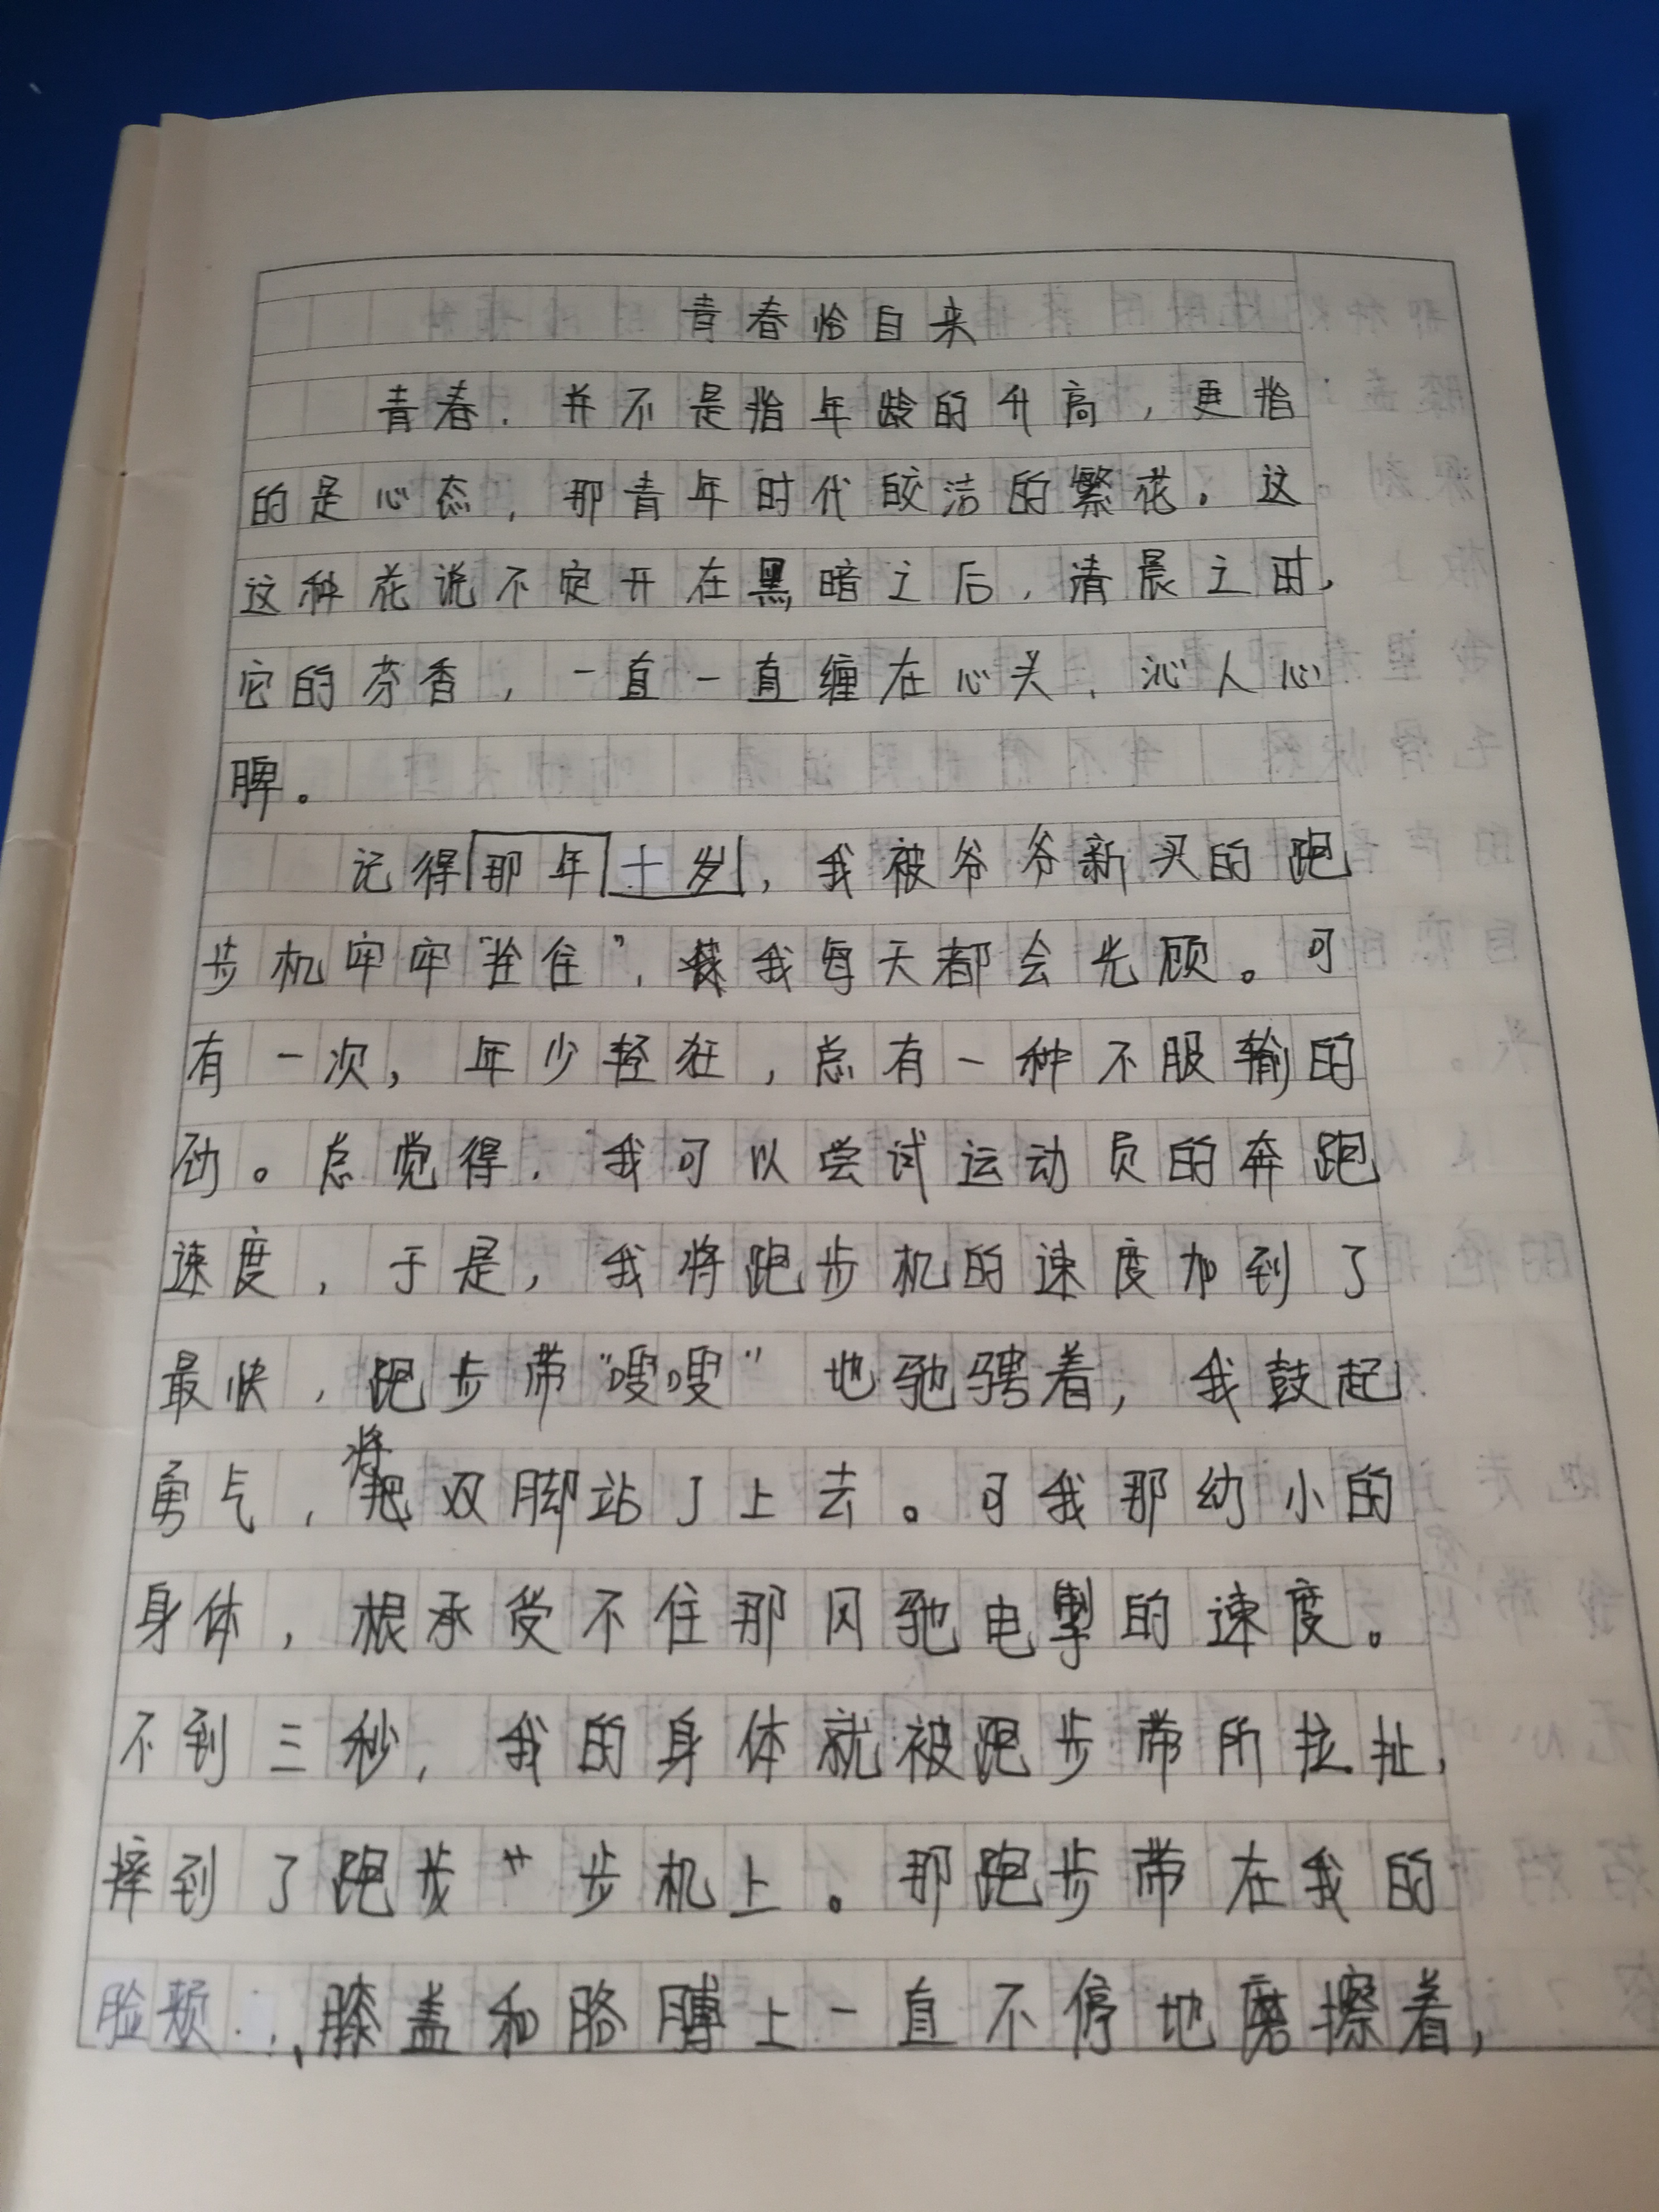 青春恰自来
青春，并不是指年龄的升高，更指
的是心态，那青年时代皎洁的繁花。这
这种花说不定开在黑暗之后，清晨之时，
它的芬香，一直一直缠在心头，沁人心
脾。
记得那年十岁，我被爷爷新买的跑
步机牢牢“拴住”，我每天都会光顾。可
有一次，年少轻狂，总有一种不服输的
劲。总觉得，我可以尝试运动员的奔跑
速度，于是，我将跑步机的速度加到了
最快，跑步带“嗖嗖”地驰骋着，我鼓起
勇气，将双脚站了上去。可我那幼小的
身体，根承受不住那风驰电掣的速度。
不到三秒，我的身体就被跑步带所拉扯，
摔到了跑步步机上。那跑步带在我的
脸颊、膝盖和胳膊上一直不停地磨擦着，